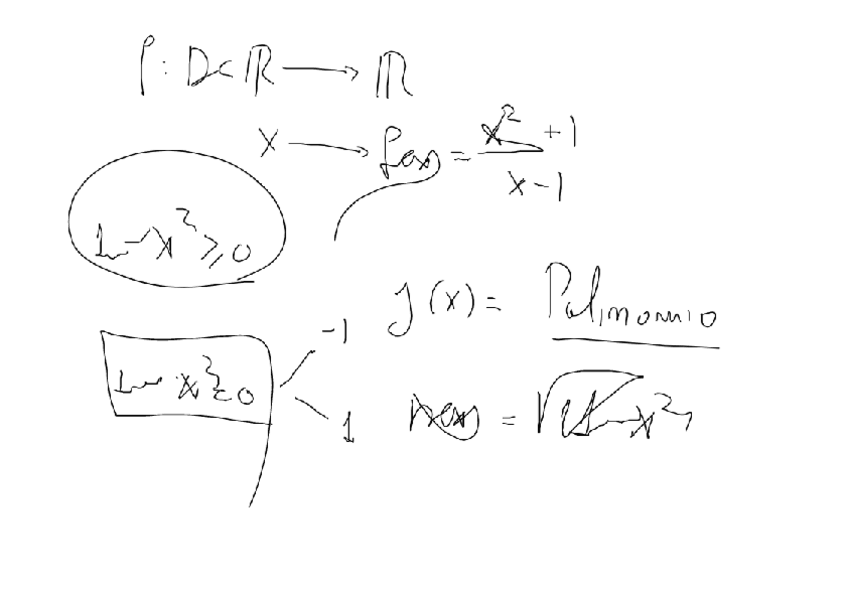 f : D ⊂ ℝ ⟶ ℝ
x ⟶ f(x) = (x² + 1)/(x - 1)
1 - x² ≥ 0
g(x) = Polinomio
1 - x² = 0
-1
1
h(x) = √(1 - x²)